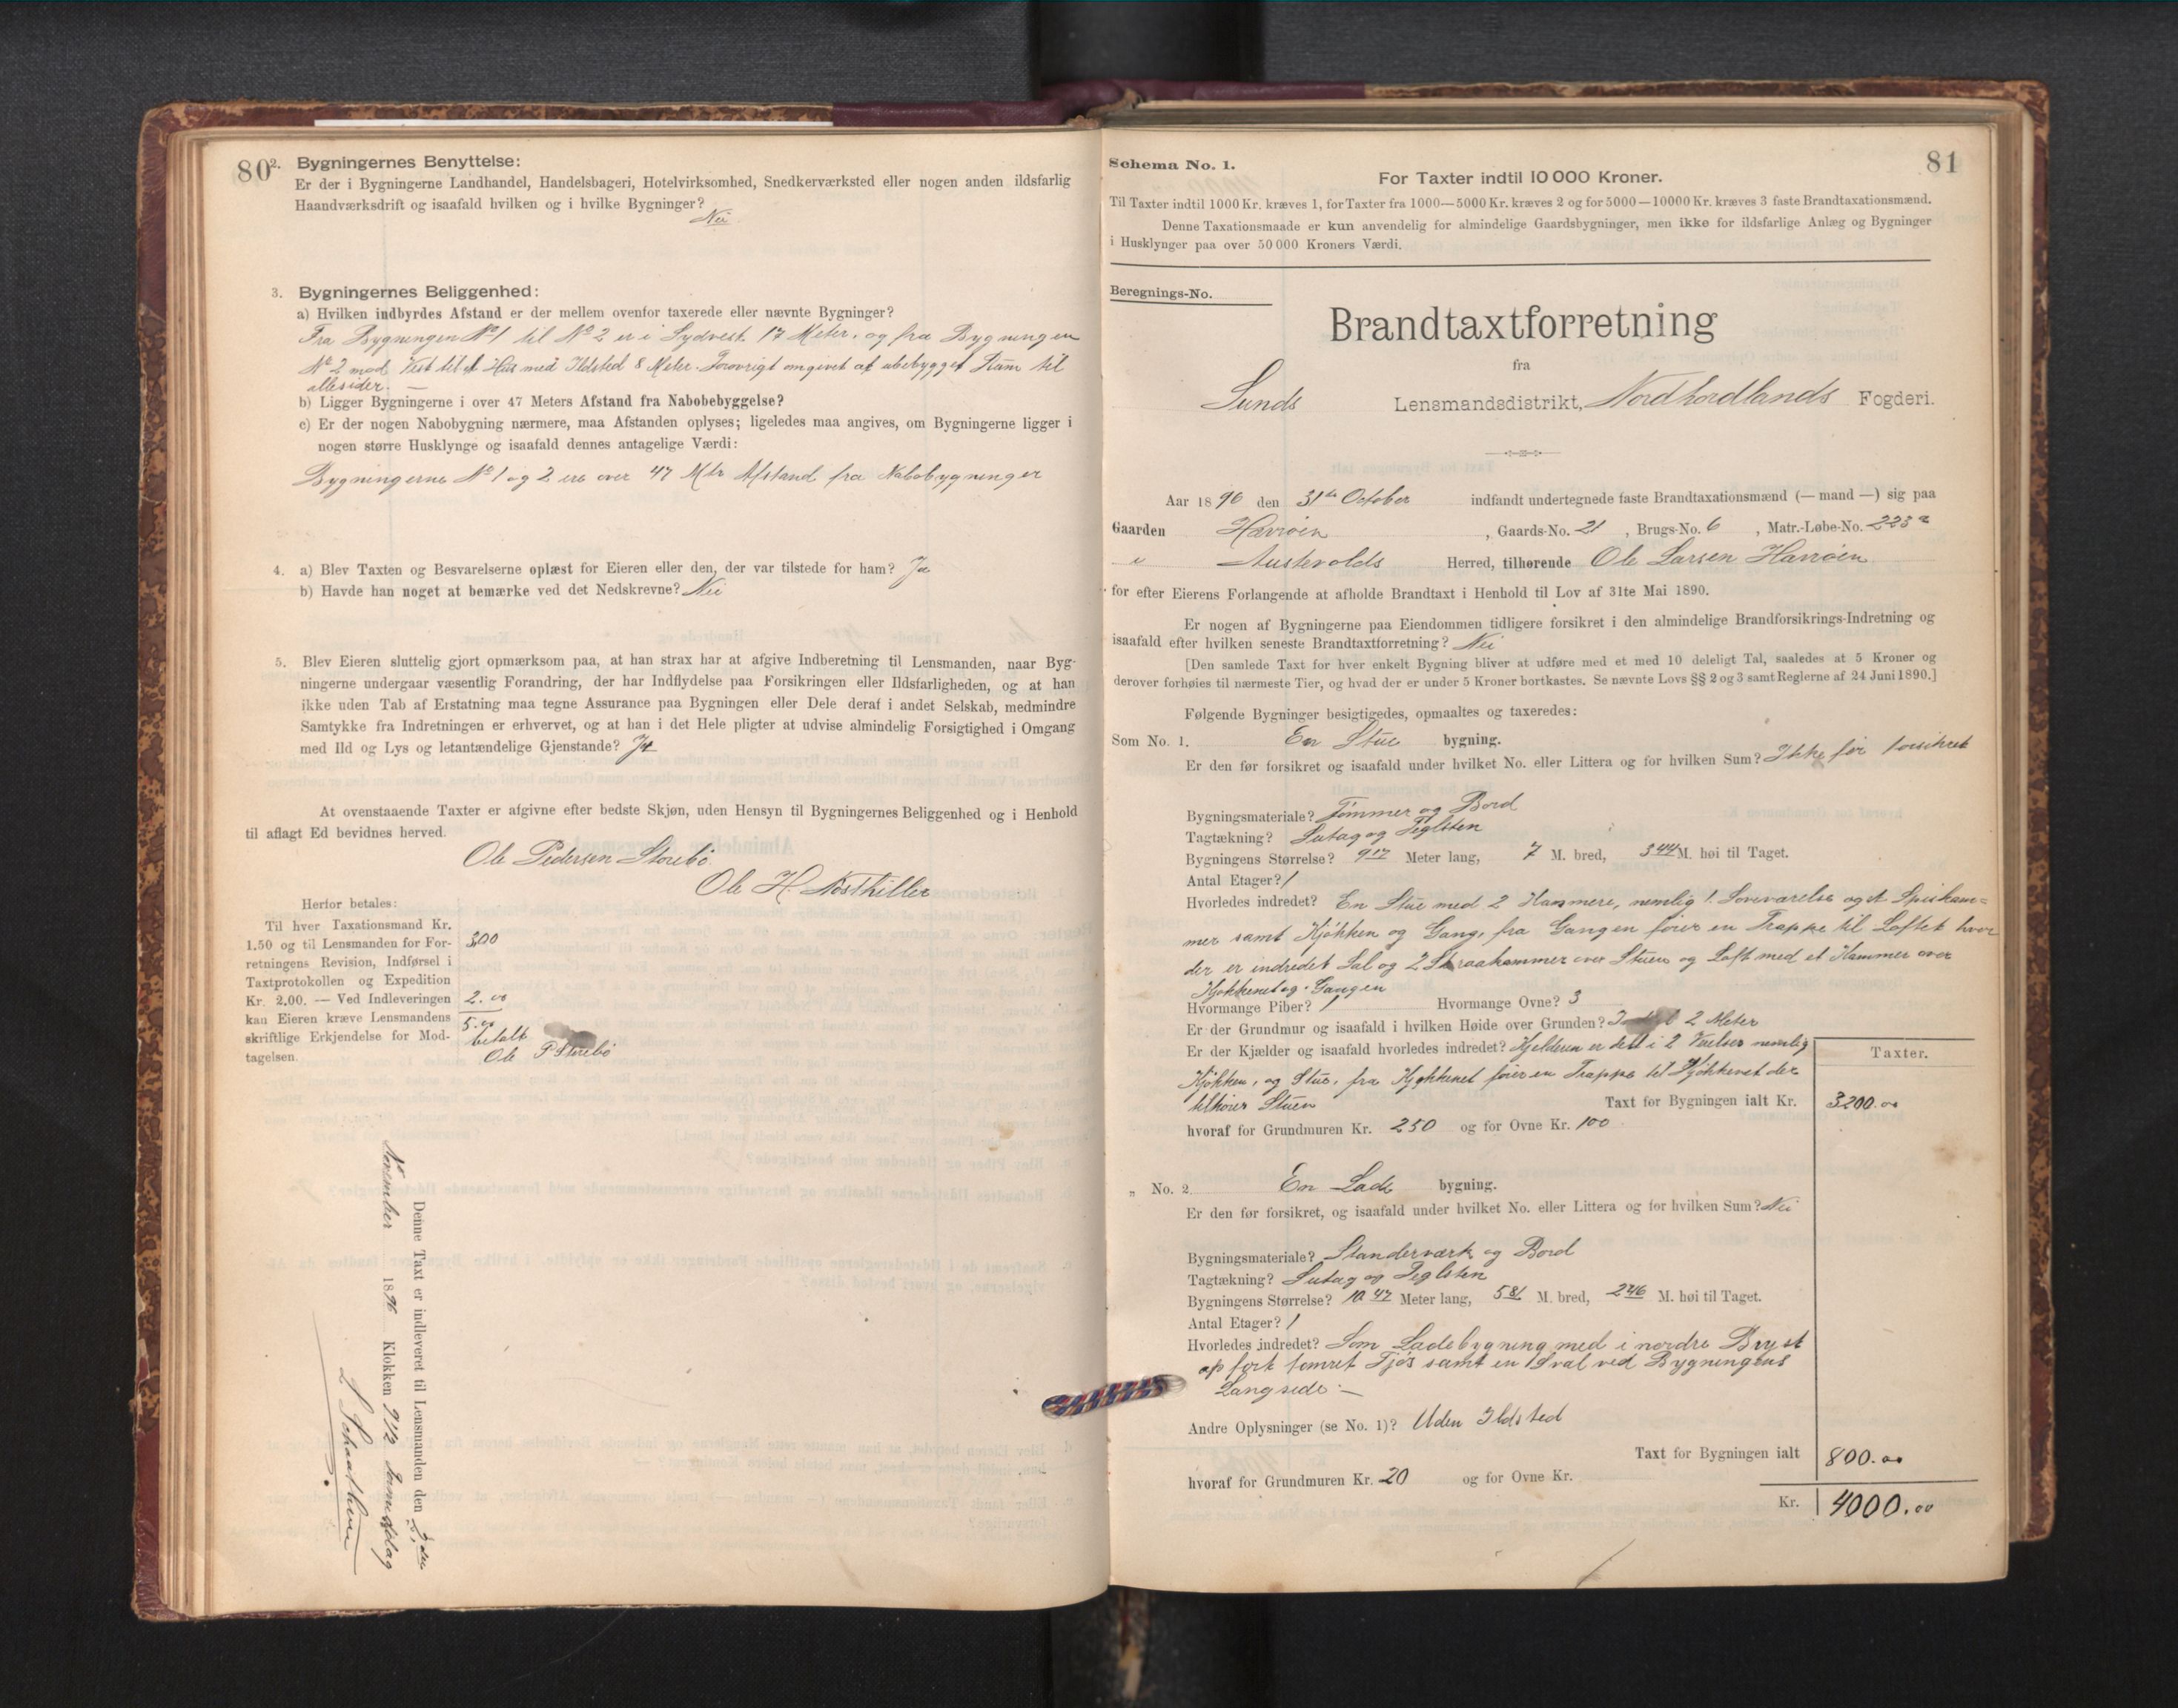 80
2. Bygningernes Benyttelse:
Er der i Bygningerne Landhandel, Handelsbageri, Hotelvirksomhed, Snedkerværksted eller nogen anden ildsfarlig
Haandværksdrift og isaafald hvilken og i hvilke Bygninger?
Nei
3. Bygningernes Beliggenhed:
a) Hvilken indbyrdes Afstand er der mellem ovenfor taxerede eller nævnte Bygninger?
Fra Bygningen No 1 til No 2 er i Sydvest 17 Meter, og fra Bygningen
No 2 mod Vest til et Hus med Ildsted 8 Meter. Forøvrigt omgivet af ubebygget Rum til
allesider. —
b) Ligger Bygningerne i over 47 Meters Afstand fra Nabobebyggelse?
c) Er der nogen Nabobygning nærmere, maa Afstanden oplyses; ligeledes maa angives, om Bygningerne ligger i
nogen større Husklynge og isaafald dennes antagelige Værdi:
Bygningerne No 1 og 2 ere over 47 Mtr Afstand fra Nabobygninger
4. a) Blev Taxten og Besvarelserne oplæst for Eieren eller den, der var tilstede for ham? Ja
b) Havde han noget at bemærke ved det Nedskrevne? Nei
5. Blev Eieren sluttelig gjort opmærksom paa, at han strax har at afgive Indberetning til Lensmanden, naar Byg-
ningerne undergaar væsentlig Forandring, der har Indflydelse paa Forsikringen eller Ildsfarligheden, og at han
ikke uden Tab af Erstatning maa tegne Assurance paa Bygningen eller Dele deraf i andet Selskab, medmindre
Samtykke fra Indretningen er erhvervet, og at han i det Hele pligter at udvise almindelig Forsigtighed i Omgang
med Ild og Lys og letantændelige Gjenstande? Ja
At ovenstaaende Taxter er afgivne efter bedste Skjøn, uden Hensyn til Bygningernes Beliggenhed og i Henhold
til aflagt Ed bevidnes herved.
Ole Pedersen Storebø
Ole H.
Herfor betales:
Til hver Taxationsmand Kr.
1.50 og til Lensmanden for For-
retningens Revision, Indførsel i
Taxtprotokollen og Expedition
Kr. 2.00. — Ved Indleveringen
kan Eieren kræve Lensmandens
skriftlige Erkjendelse for Mod-
tagelsen.
3,00
2.00
5.00
betalt
Ole P Storebø
Denne Taxt er indleveret til Lensmanden den 2den
November 1896 Klokken 9 1/2 Formiddag
81
Schema No. 1.
For Taxter indtil 10 000 Kroner.
Til Taxter indtil 1000 Kr. kræves 1, for Taxter fra 1000—5000 Kr. kræves 2 og for 5000—10000 Kr. kræves 3 faste Brandtaxationsmænd.
Denne Taxationsmaade er kun anvendelig for almindelige Gaardsbygninger, men ikke for ildsfarlige Anlæg og Bygninger
i Husklynger paa over 50 000 Kroners Værdi.
Beregnings-No.
Brandtaxtforretning
fra
Sunds Lensmandsdistrikt, Nordhordlands Fogderi.
Aar 1896 den 31te October indfandt undertegnede faste Brandtaxationsmænd (— mand —) sig paa
Gaarden Havrøen, Gaards-No. 21, Brugs-No. 6, Matr.-Løbe-No. 223a
i Austevolds Herred, tilhørende Ole Larsen Havrøen
for efter Eierens Forlangende at afholde Brandtaxt i Henhold til Lov af 31te Mai 1890.
Er nogen af Bygningerne paa Eiendommen tidligere forsikret i den almindelige Brandforsikrings-Indretning og
isaafald efter hvilken seneste Brandtaxtforretning? Nei
[Den samlede Taxt for hver enkelt Bygning bliver at udføre med et med 10 deleligt Tal, saaledes at 5 Kroner og
derover forhøies til nærmeste Tier, og hvad der er under 5 Kroner bortkastes. Se nævnte Lovs §§ 2 og 3 samt Reglerne af 24 Juni 1890.]
Følgende Bygninger besigtigedes, opmaaltes og taxeredes:
Som No. 1. En Stue bygning.
Er den før forsikret og isaafald under hvilket No. eller Littera og for hvilken Sum? Ikke før forsikret
Bygningsmateriale? Tømmer og Bord
Tagtækning? Sutag og Teglsten
Bygningens Størrelse? 9 17 Meter lang, 7 M. bred, 3 44 M. høi til Taget.
Antal Etager? 1
Hvorledes indredet? En Stue med 2 Kammere, nemlig 1 Soveværelse og et Spiskam=
mer samt Kjøkken og Gang, fra Gangen fører en Trappe til Loftet hvor
der er indredet Sal og 2 Skraakammer over Stuen og Loft med et Kammer over
Kjøkkenet og Gangen
Hvormange Piber? 1 Hvormange Ovne? 3
Er der Grundmur og isaafald i hvilken Høide over Grunden? 2 Meter
Er der Kjælder og isaafald hvorledes indredet? Kjelderen er delt i 2 nemlig
Kjøkken, og Stue, fra Kjøkkenet fører en Trappe til Kjøkkenet der
tilhører Stuen
Taxter.
Taxt for Bygningen ialt Kr. 3200.00
hvoraf for Grundmuren Kr. 250 og for Ovne Kr. 100
„ No. 2. En Lade bygning.
Er den før forsikret, og isaafald under hvilket No. eller Littera og for hvilken Sum? Nei
Bygningsmateriale? Standerværk og Bord
Tagtækning? Sutag og Teglsten
Bygningens Størrelse? 10 47 Meter lang, 5 81 M. bred, 2 46 M. høi til Taget.
Antal Etager? 1
Hvorledes indredet? Som Ladebygning med i nordre Bryst
opført tømret Fjøs samt en Sval ved Bygningens
Langside. —
Andre Oplysninger (se No. 1)? Uden Ildsted
Taxt for Bygningen ialt 800.00
hvoraf for Grundmuren Kr. 20 og for Ovne Kr.
Kr. 4000.00